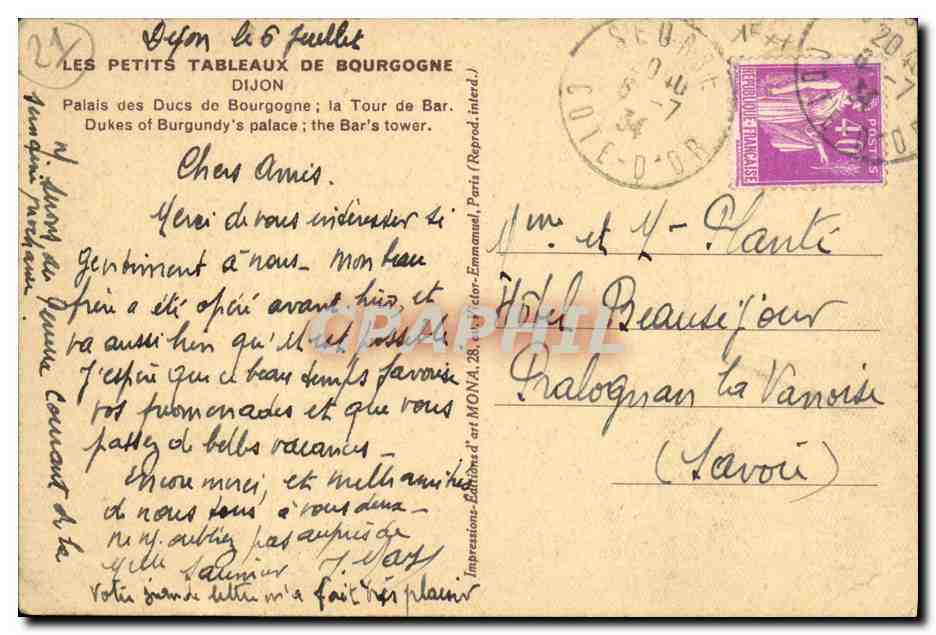 21
Dijon le 6 Juillet
LES PETITS TABLEAUX DE BOURGOGNE
DIJON
Palais des Ducs de Bourgogne ; la Tour de Bar.
Dukes of Burgundy's palace ; the Bar's tower.
Chers Amis.
Merci de vous intéresser si
gentiment à nous - Mon beau
frère a été opéré avant hier, et
va aussi bien qu'il est possible
J'espère que ce beau temps favorise
vos promenades et que vous
passez de belles vacances -
Encore merci, et mille amitiés
de nous tous à vous deux -
ne m'oubliez pas auprès de
Melle Saunier
Votre grande lettre m'a fait très plaisir
n/ serons de retour courant de la
semaine prochaine
Impressions-Editions d'art MONA, 28, Victor-Emmanuel, Paris (Reprod. interd.)
CPAPHIL
COTE-D'OR
6 -7
34
REPUBLIQUE FRANCAISE
POSTES
40
Mme et Mr Planté
Hôtel Beauséjour
Pralognan la Vanoise
(Savoie)